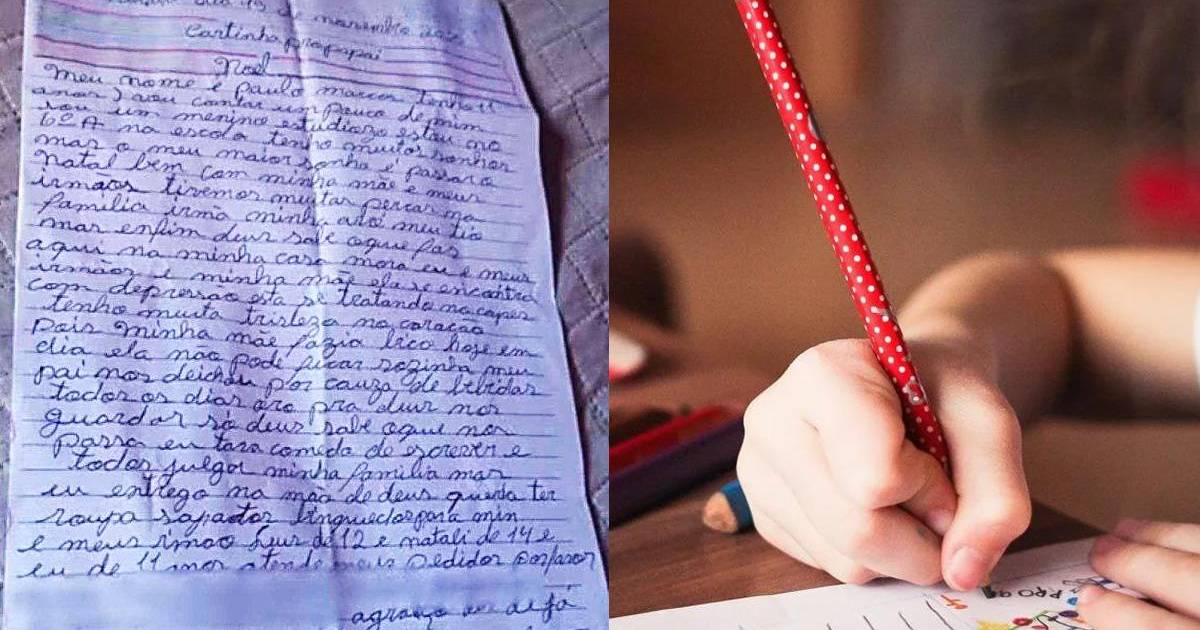 de novembro
Cartinha pra papai
Noel
Meu nome é paulo marcos tenho 11
anos) vou contar um pouco de mim
sou um menino estudiozo estou no
6º A na escola tenho muitos sonhos
mas o meu maior sonho é passar o
natal bem com minha mãe e meus
irmãos tivemos muitas percas na
familia irmã minha avó meu tio
mas enfim deus sabe oque fas
aqui na minha casa mora eu e meus
irmãos e minha mãe ela se encontra
com depressão esta se tratando no capes
tenho muita tristeza no coração
pois minha mãe fazia bico hoje em
dia ela não pode ficar sozinha meu
pai nos deichou por cauza de bibidas
todos os dias oro pra deus nos
guardar só deus sabe oque nos
passa eu tava com de escrever e
todos julgar minha familia mas
eu entrego na mão de deus queria ter
roupa sapatos binquedos para min
e meus irmão de 12 e natali de 14 e
eu de 11 anos atenda meus pedidos por favor
agrasso
PRO